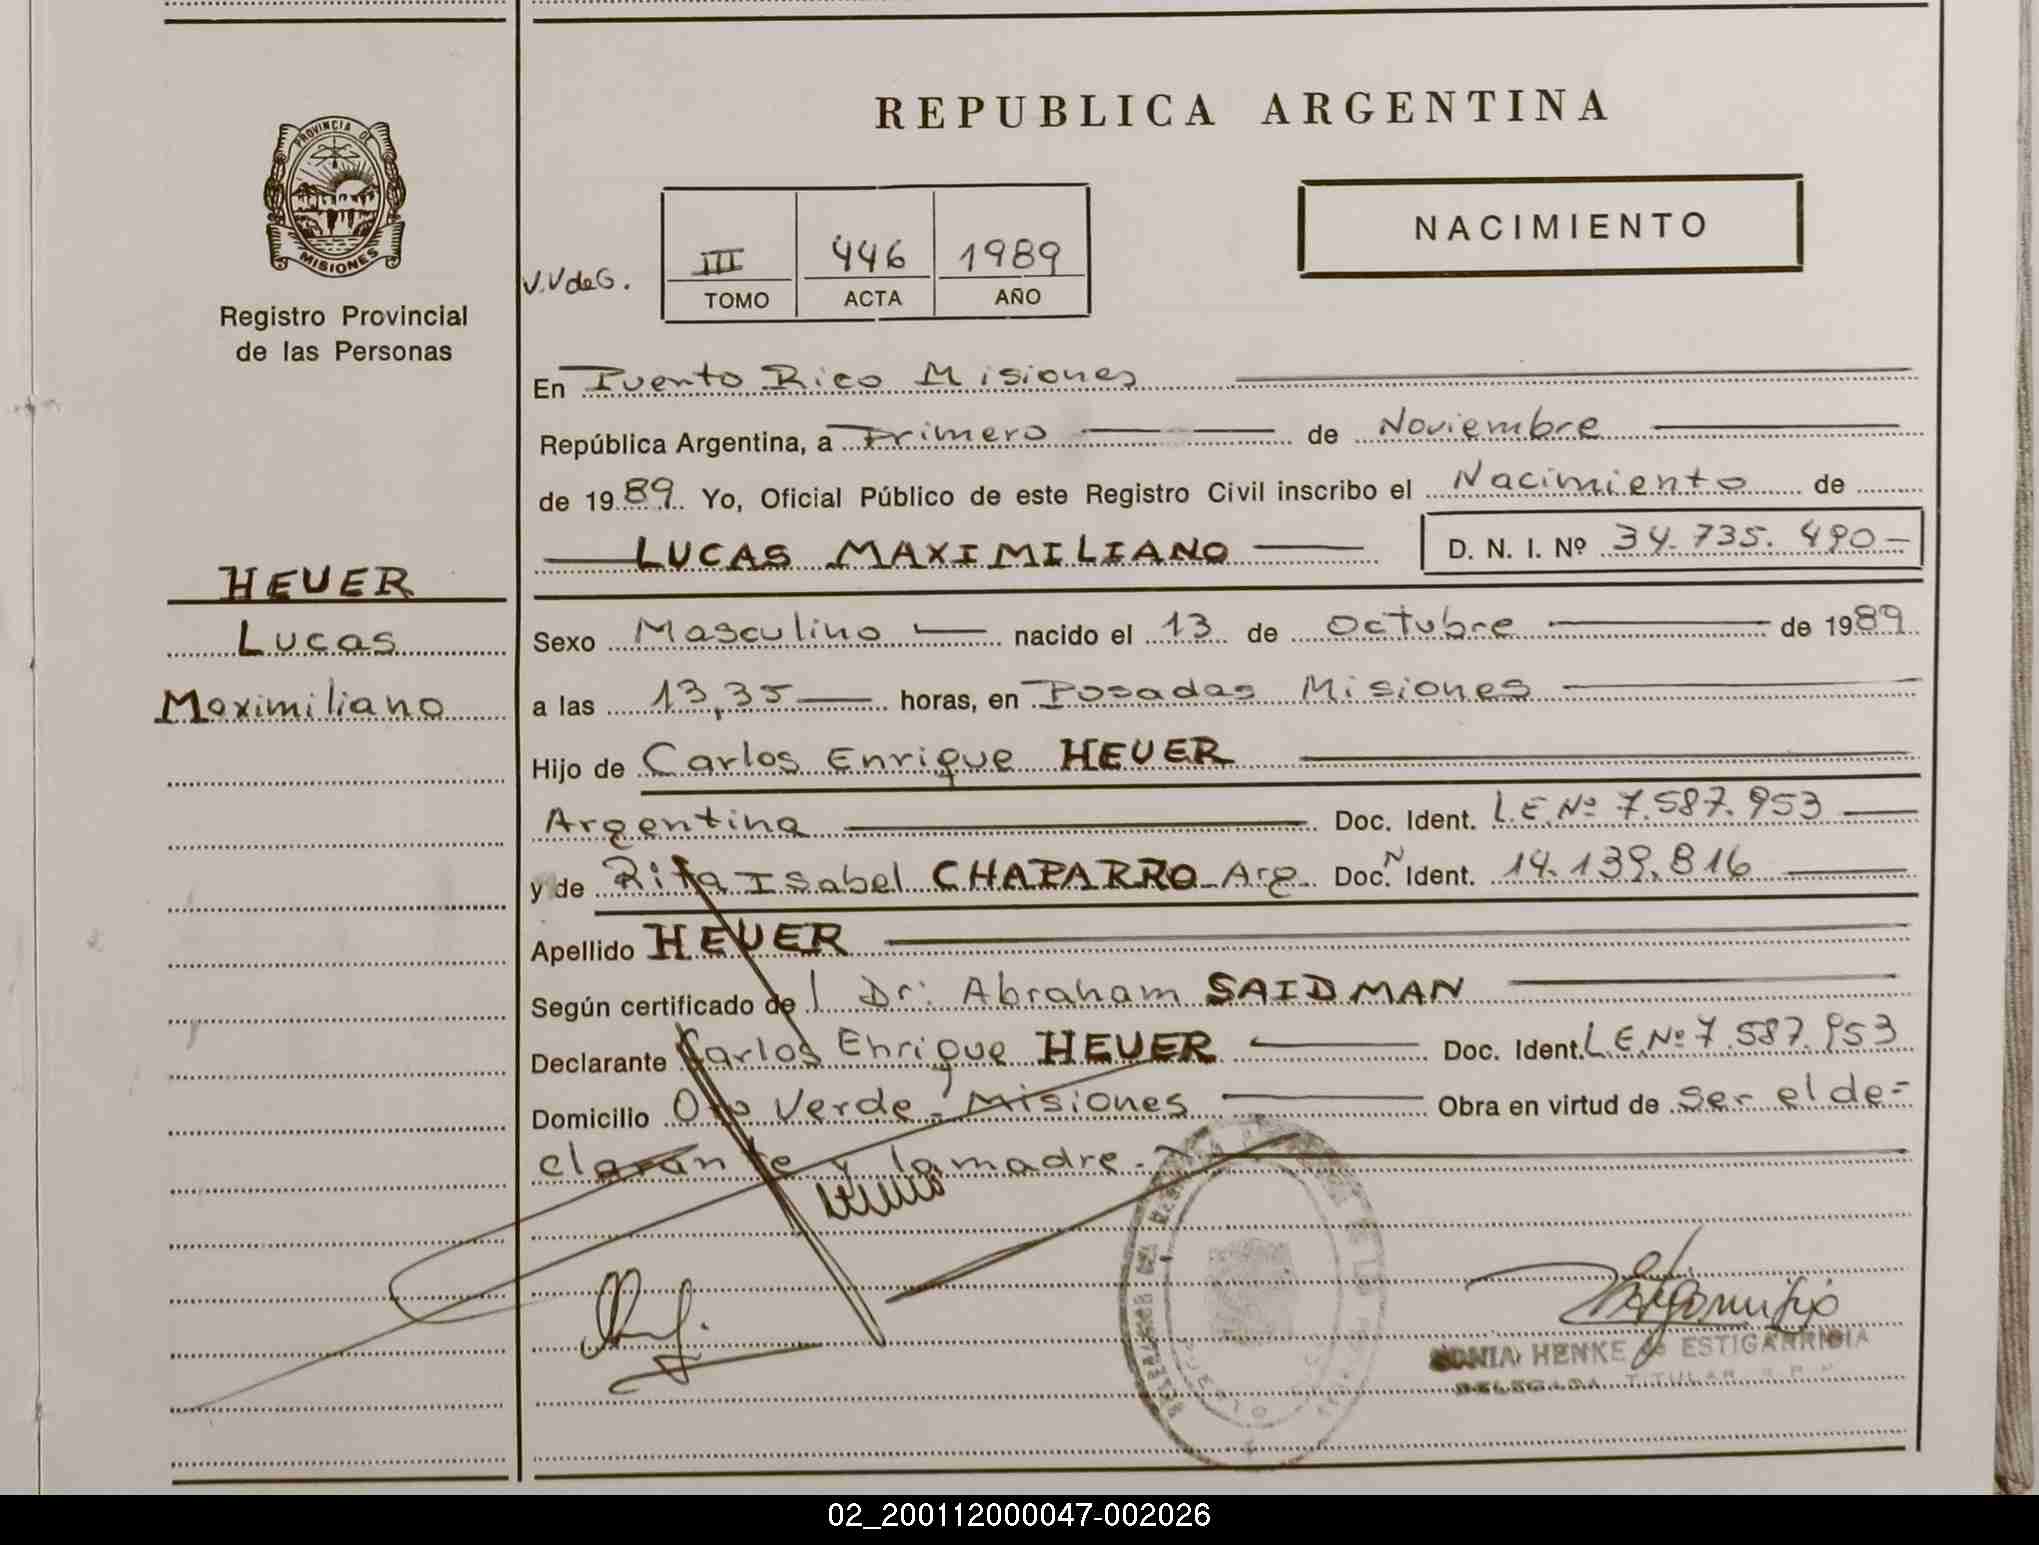 REPUBLICA ARGENTINA
PROVINCIA DE
MISIONES
Registro Provincial
de las Personas
NACIMIENTO
V.V de G.
III 446 1989
TOMO ACTA AÑO
En Puerto Rico Misiones
República Argentina, a Primero de Noviembre
de 1989. Yo, Oficial Público de este Registro Civil inscribo el Nacimiento de
LUCAS MAXIMILIANO D. N. I. Nº 34.735.490-
HEUER
Lucas
Maximiliano
Sexo Masculino nacido el 13 de Octubre de 1989
a las 13,35 horas, en Posadas Misiones
Hijo de Carlos Enrique HEUER
Argentina Doc. Ident. L.E.Nº 7.587.953
y de Rita Isabel CHAPARRO Arg. Doc. N Ident. 14.139.816
Apellido HEUER
Según certificado de l Dr: Abraham SAIDMAN
Declarante Carlos Enrique HEUER Doc. Ident. L.E.Nº 7.587.953
Domicilio Oro Verde - Misiones Obra en virtud de ser el de=
clarante y la madre.-
SONIA HENKE de ESTIGARRIBIA
DELEGADA TITULAR R.P.
02_200112000047-002026